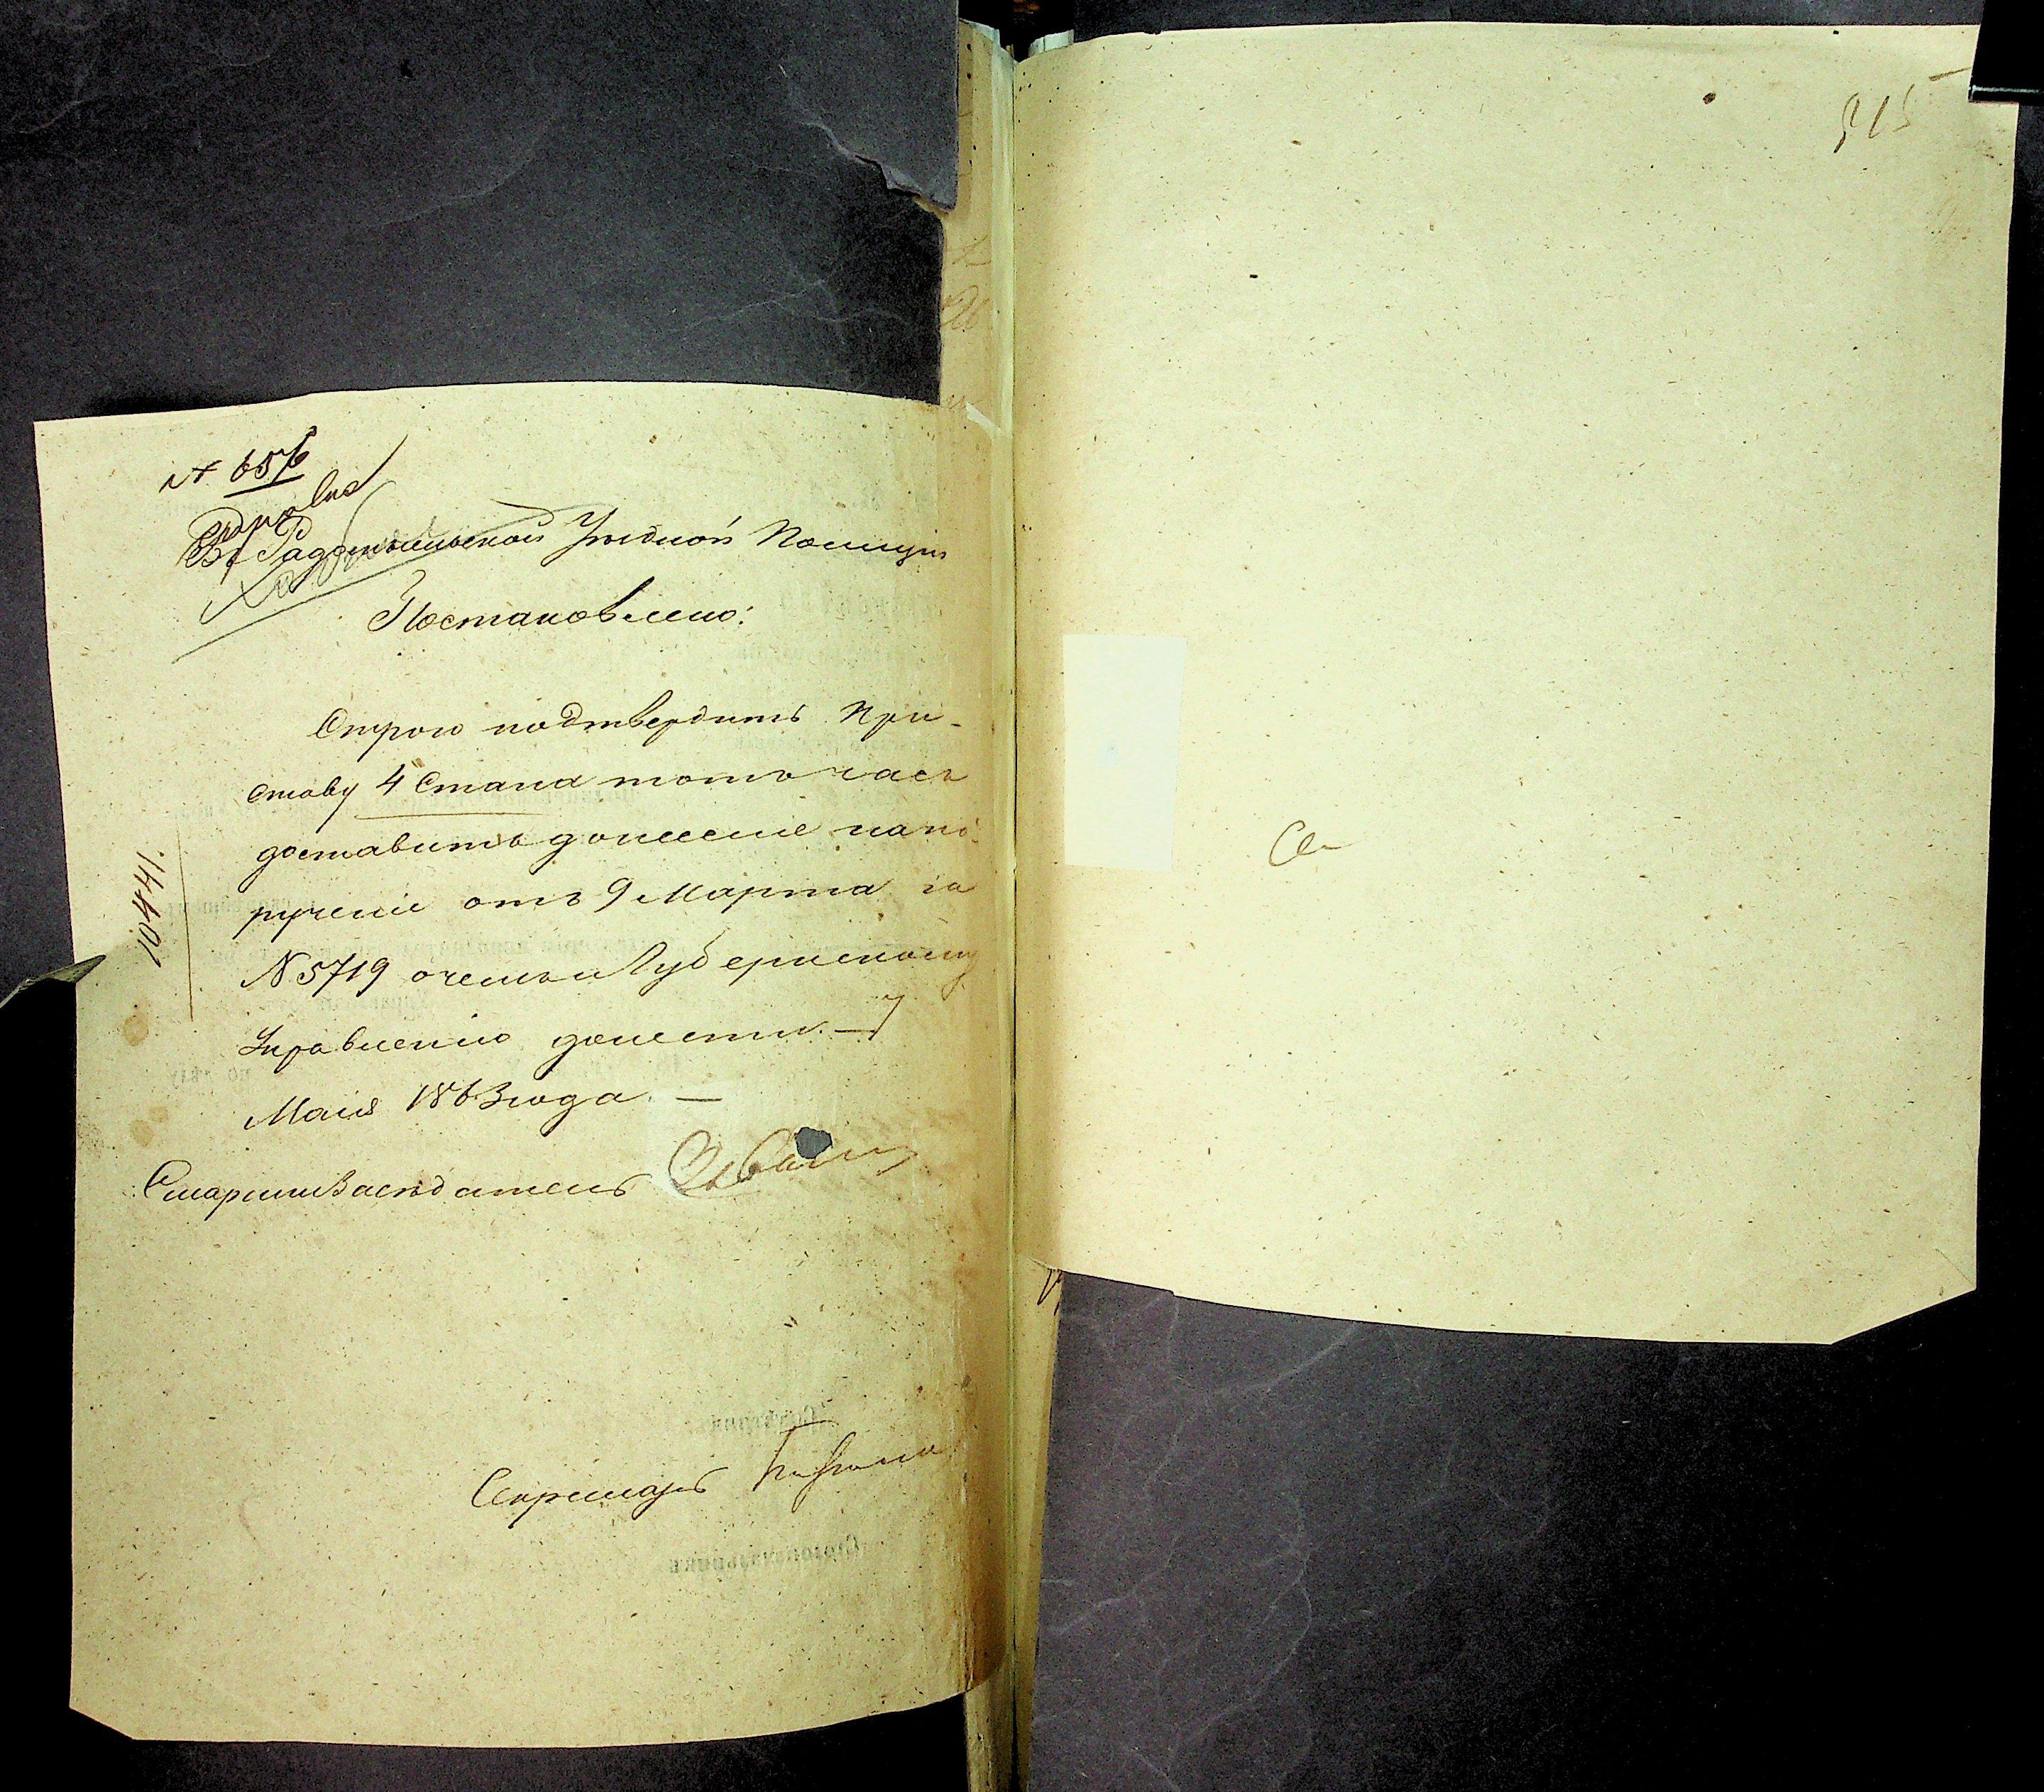 № 656
Въ Радомысльской Уѣздной Полиціи
Постановлено:
Строго подтвердить При-
ставу 4 Стана тотъ часъ
доставить донесеніе на по-
рученіе отъ 9 Марта за
№ 5719 о чемъ и Губернскому
Управленію донести. — 7
Мая 1863 года. —
Старшій Засѣдатель
Секретарь
10441.
515